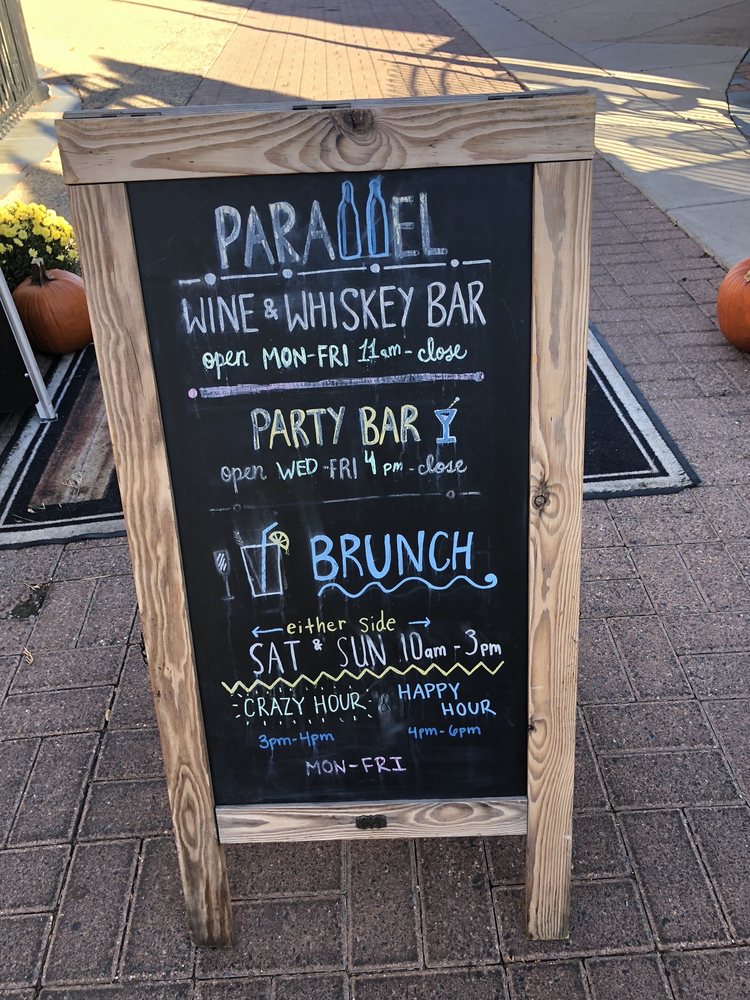 PARALLEL
WINE & WHISKEY BAR
open MON-FRI 11am-close
PARTY BAR
open WED-FRI 4pm-close
BRUNCH
either side
SAT & SUN 10am-3pm
CRAZY HOUR & HAPPY HOUR
3pm-4pm 4pm-6pm
MON-FRI